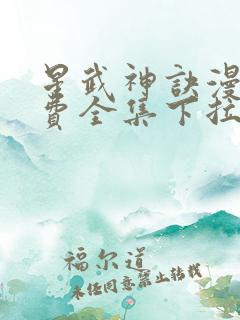 星武神诀漫
费全集下拉
福尔道
未经同意禁止转载